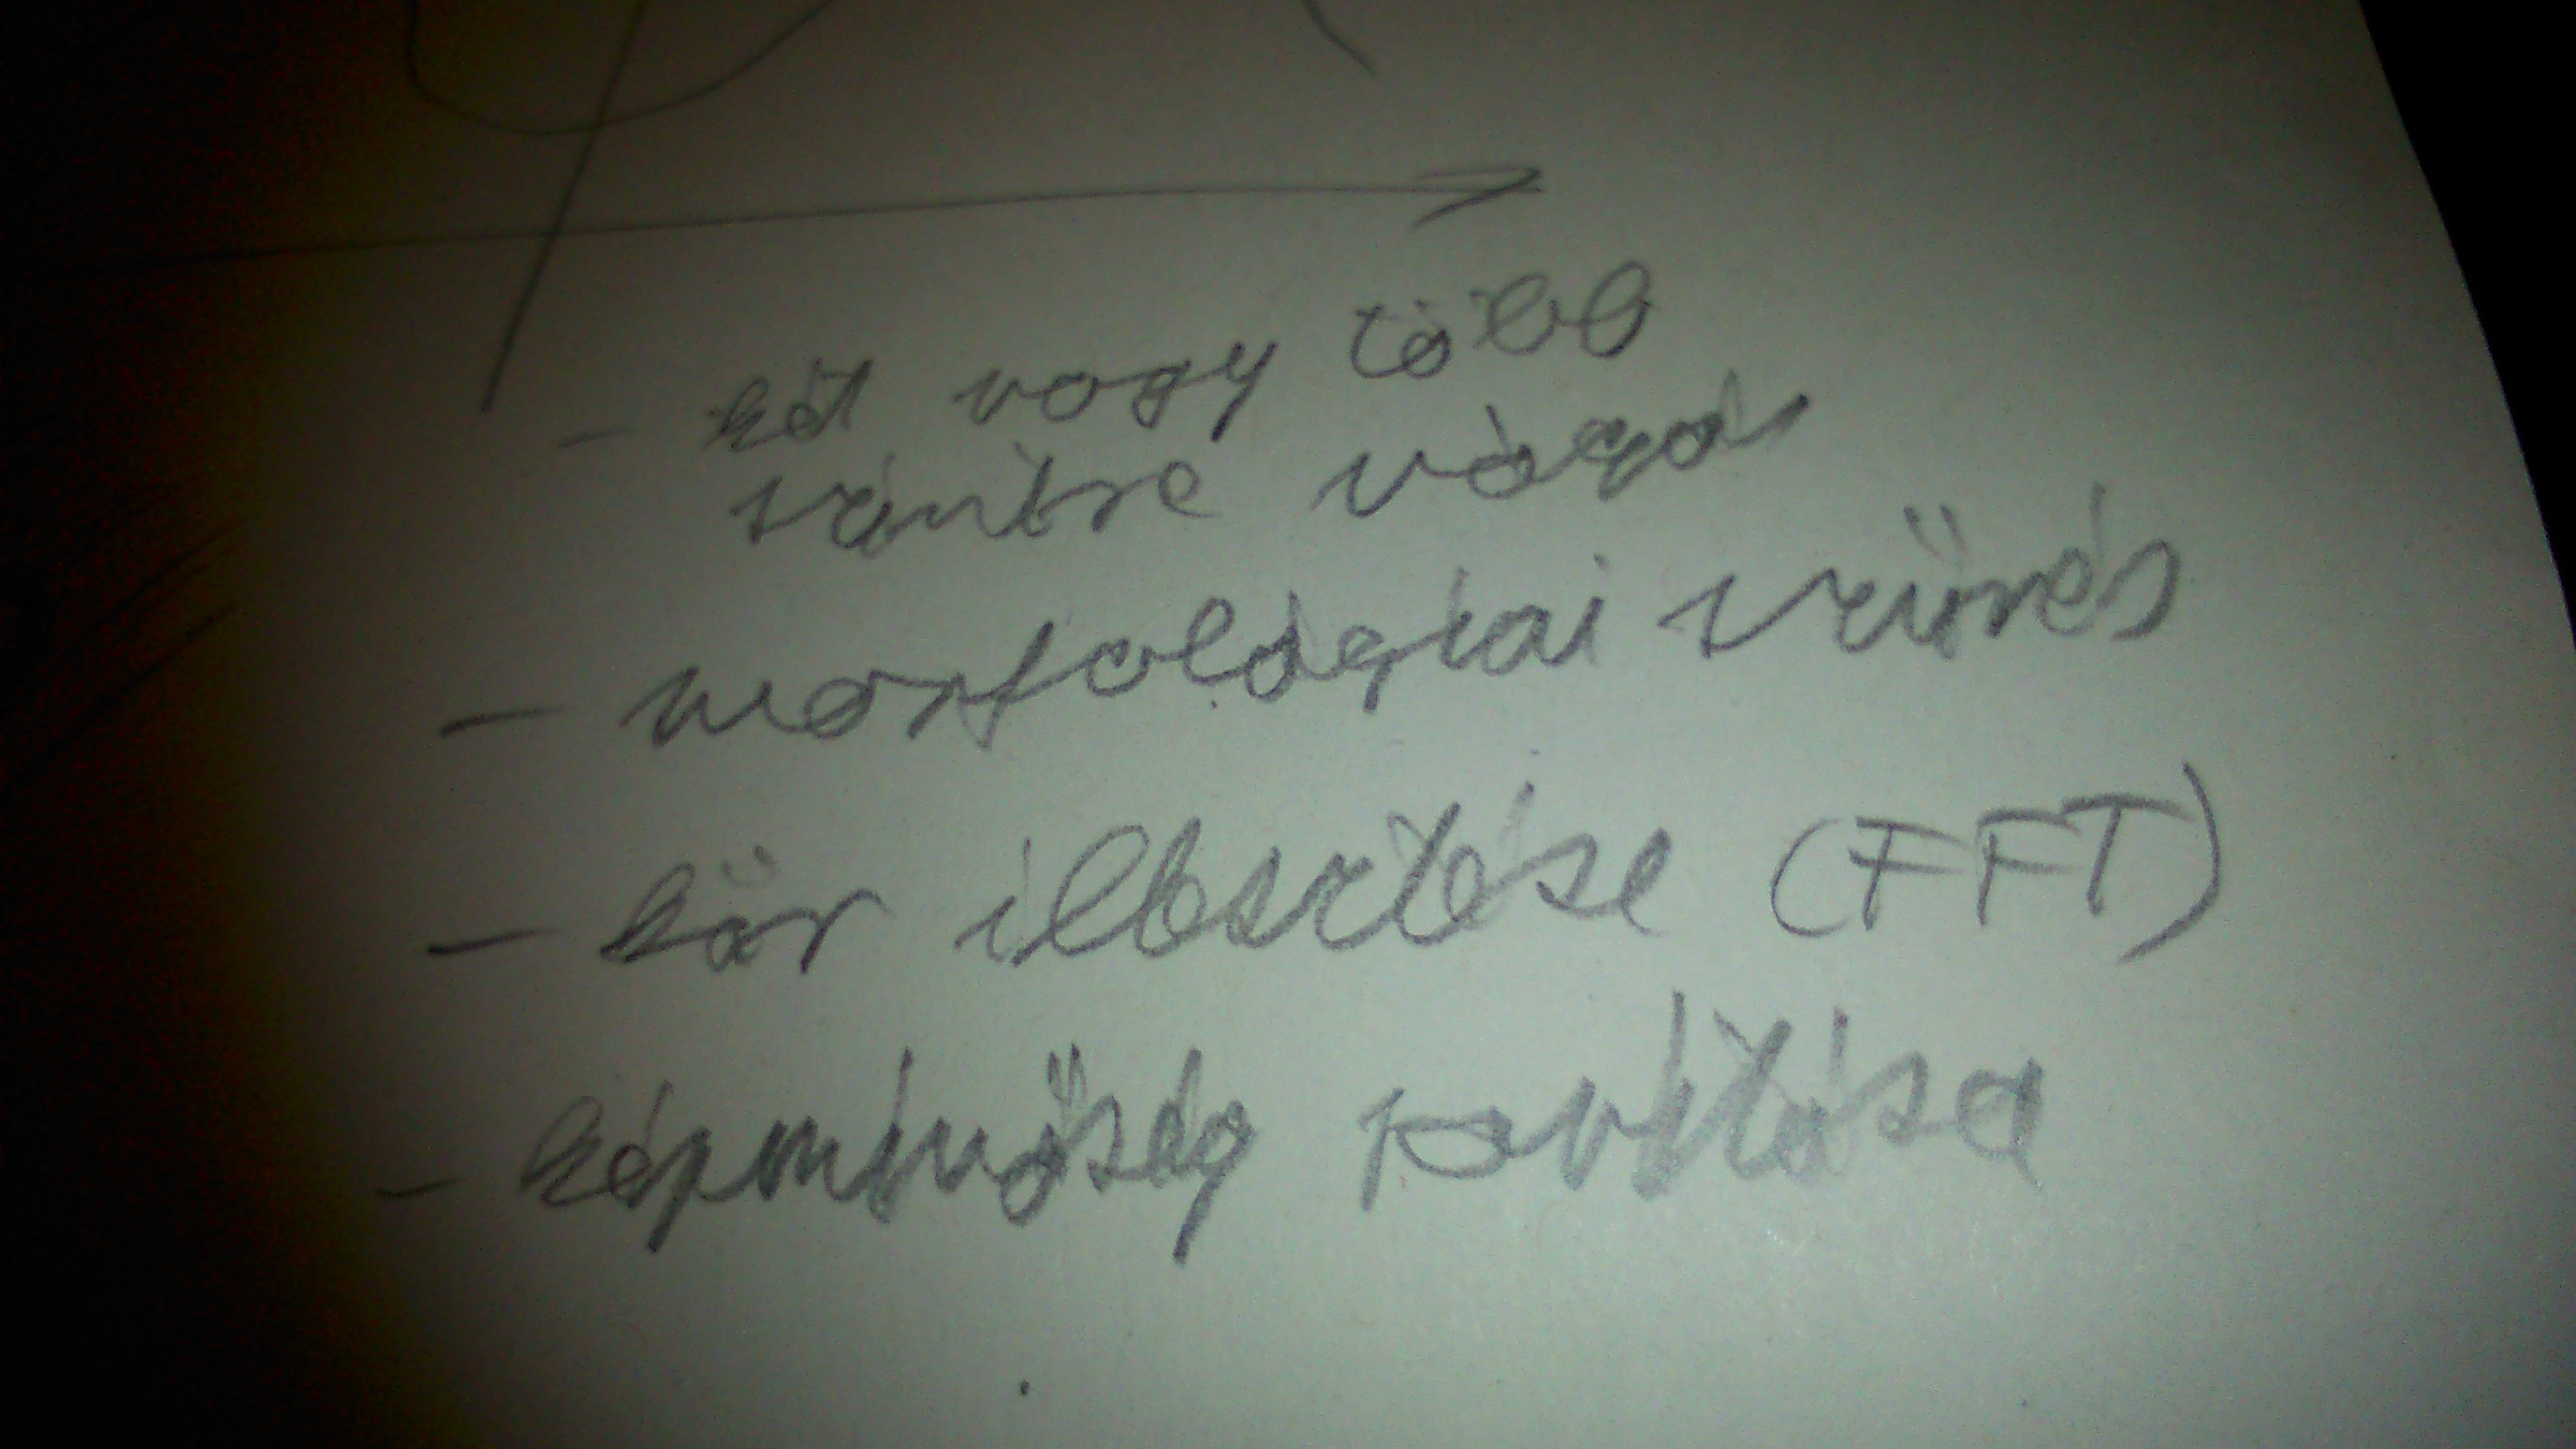 - két vagy több
szintre vágás
- morfológiai szűrés
- kör illesztése (FFT)
- képminőség javítása